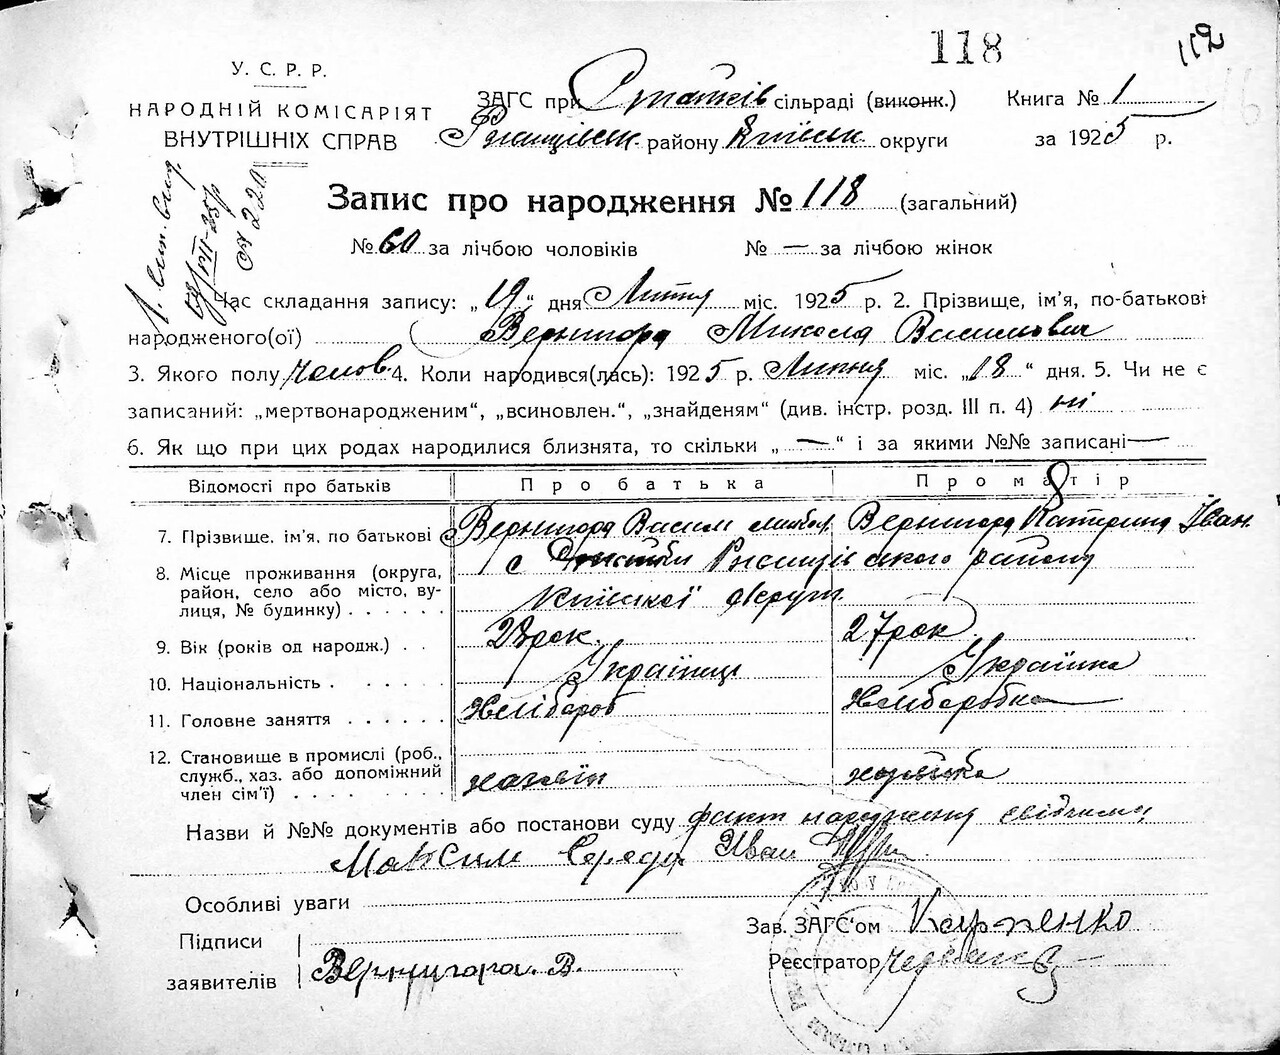 118
112
У. С. Р. Р.
НАРОДНІЙ КОМІСАРІЯТ
ВНУТРІШНІХ СПРАВ
ЗАГС при сільраді (виконк.) Книга № 1
району округи за 1925 р.
Запис про народження № 118 (загальний)
№ 60 за лічбою чоловіків № — за лічбою жінок
№ 220
Час складання запису: „19“ дня Липня міс. 1925 р. 2. Прізвище, ім’я, по-батькові
народженого(ої) Вернигора Микола Василович
3. Якого полу чолов. 4. Коли народився(лась): 1925 р. Липня міс. „18“ дня. 5. Чи не є
записаний: „мертвонародженим“, „всиновлен.“, „знайденям“ (див. інстр. розд. III п. 4) ні
6. Як що при цих родах народилися близнята, то скільки „—“ і за якими №№ записані —
Відомості про батьків Про батька Про матір
7. Прізвище, ім’я, по батькові Вернигора Васил Микол Вернигора Катерина Іван
8. Місце проживання (округа, район, село або місто, вулиця, № будинку) с району
округи
9. Вік (років од народж.) 28 рок. 27 рок
10. Національність Українец Українка
11. Головне заняття Хлібороб Хлібаробка
12. Становище в промислі (роб., служб., хаз. або допоміжний член сім’ї) хазяїн
Назви й №№ документів або постанови суду факт народження свідчили
Максим Середа Иван
Особливі уваги
Підписи заявителів Вернигора. В.
Зав. ЗАГС‘ом Карпенко
Реєстратор